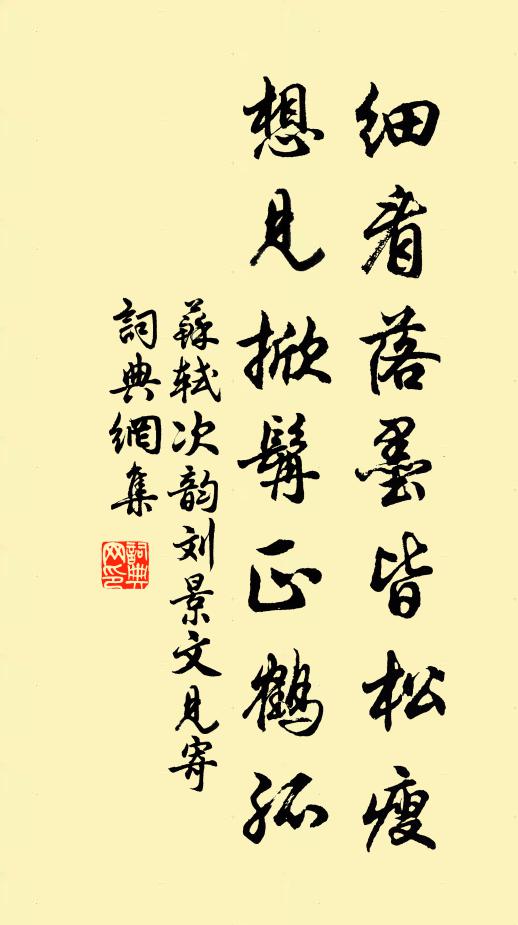 细看落墨皆松瘦
想见掀髯正鹤孤
蘇轼次韵刘景文见寄
詞典網集
詞典网印